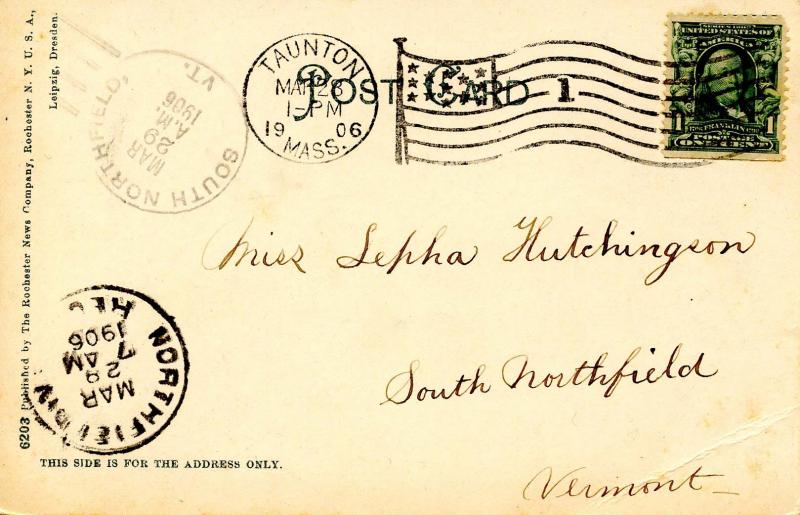 POST CARD
TAUNTON
MAR 28
1-PM
19 06
MASS.
1
SERIES 1902
UNITED STATES OF
AMERICA
1 1
SOUTH NORTHFIELD,
VT.
MAR
29
A.M.
1906
Miss Lepha Hutchingson
South Northfield
Vermont
NORTHFIELD
REC
MAR
7 AM
1906
6203 Published by The Rochester News Company, Rochester N. Y. U. S. A.,
Leipzig, Dresden.
THIS SIDE IS FOR THE ADDRESS ONLY.